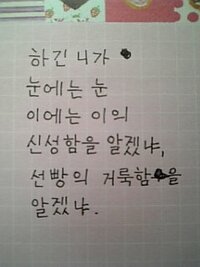 하긴 니가
눈에는 눈
이에는 이의
신성함을 알겠냐,
선빵의 거룩함을
알겠냐.